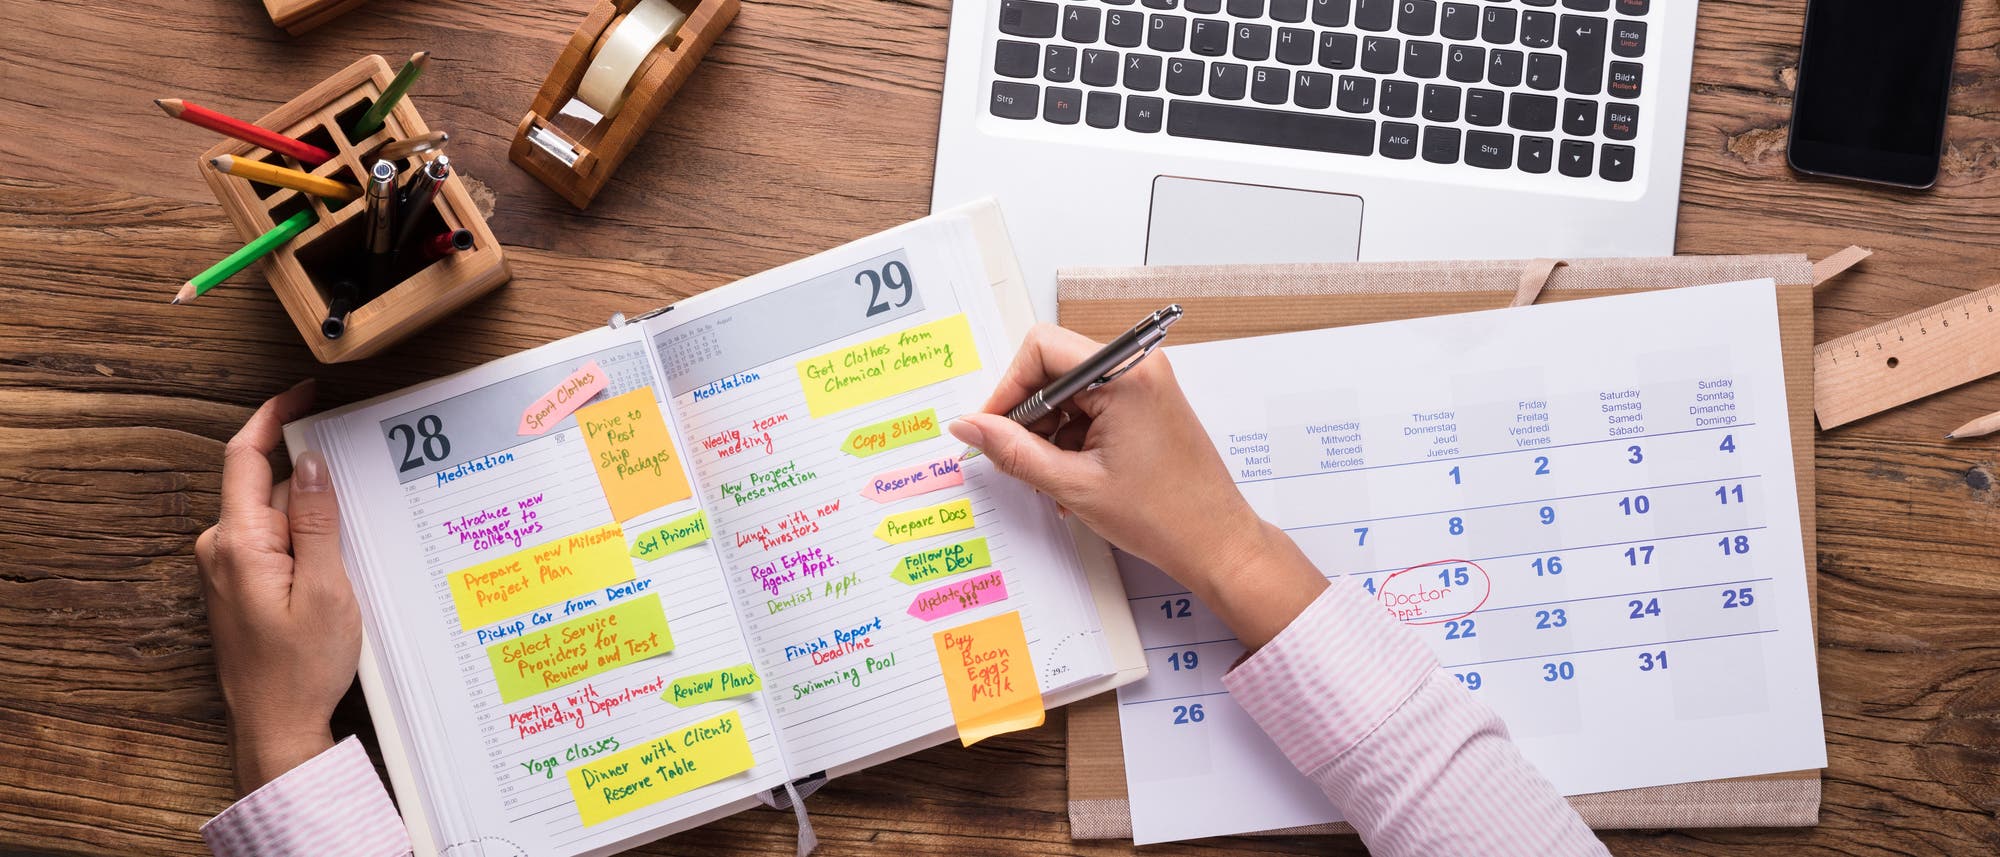 28
Sport Clothes
Meditation
Drive to
Post
Ship
Packages
Introduce new
Manager to
colleagues
Set Prioriti
Prepare new Milestone
Project Plan
Pickup Car from Dealer
Select Service
Providers for
Review and Test
Meeting with
Marketing Department
Review Plans
Yoga Classes
Dinner with Clients
Reserve Table
29
August
Meditation
Get Clothes from
Chemical cleaning
Weekly team
meeting
Copy Slides
New Project
Presentation
Reserve Table
Lunch with new
Investors
Prepare Docs
Real Estate
Agent Appt.
Follow up
with Dev
Dentist Appt.
Update Charts
!!!
Finish Report
Deadline
Buy
Bacon
Eggs
Milk
Swimming Pool
29.7.
A S D F G H J K L Ö Ä
Y X C V B N M µ
Strg Fn Alt AltGr Strg
I O P Ü
Ende
Bild
Bild
Tuesday Wednesday Thursday Friday Saturday Sunday
Dienstag Mittwoch Donnerstag Freitag Samstag Sonntag
Mardi Mercedi Jeudi Vendredi Samedi Dimanche
Martes Miércoles Jueves Viernes Sábado Domingo
1 2 3 4
7 8 9 10 11
4 15 16 17 18
Doctor
Appt.
12 22 23 24 25
19 29 30 31
26
1 2 3 4 5 6 7 8